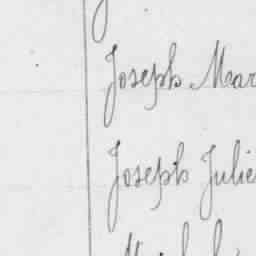 Joseph Mar
Joseph Julie